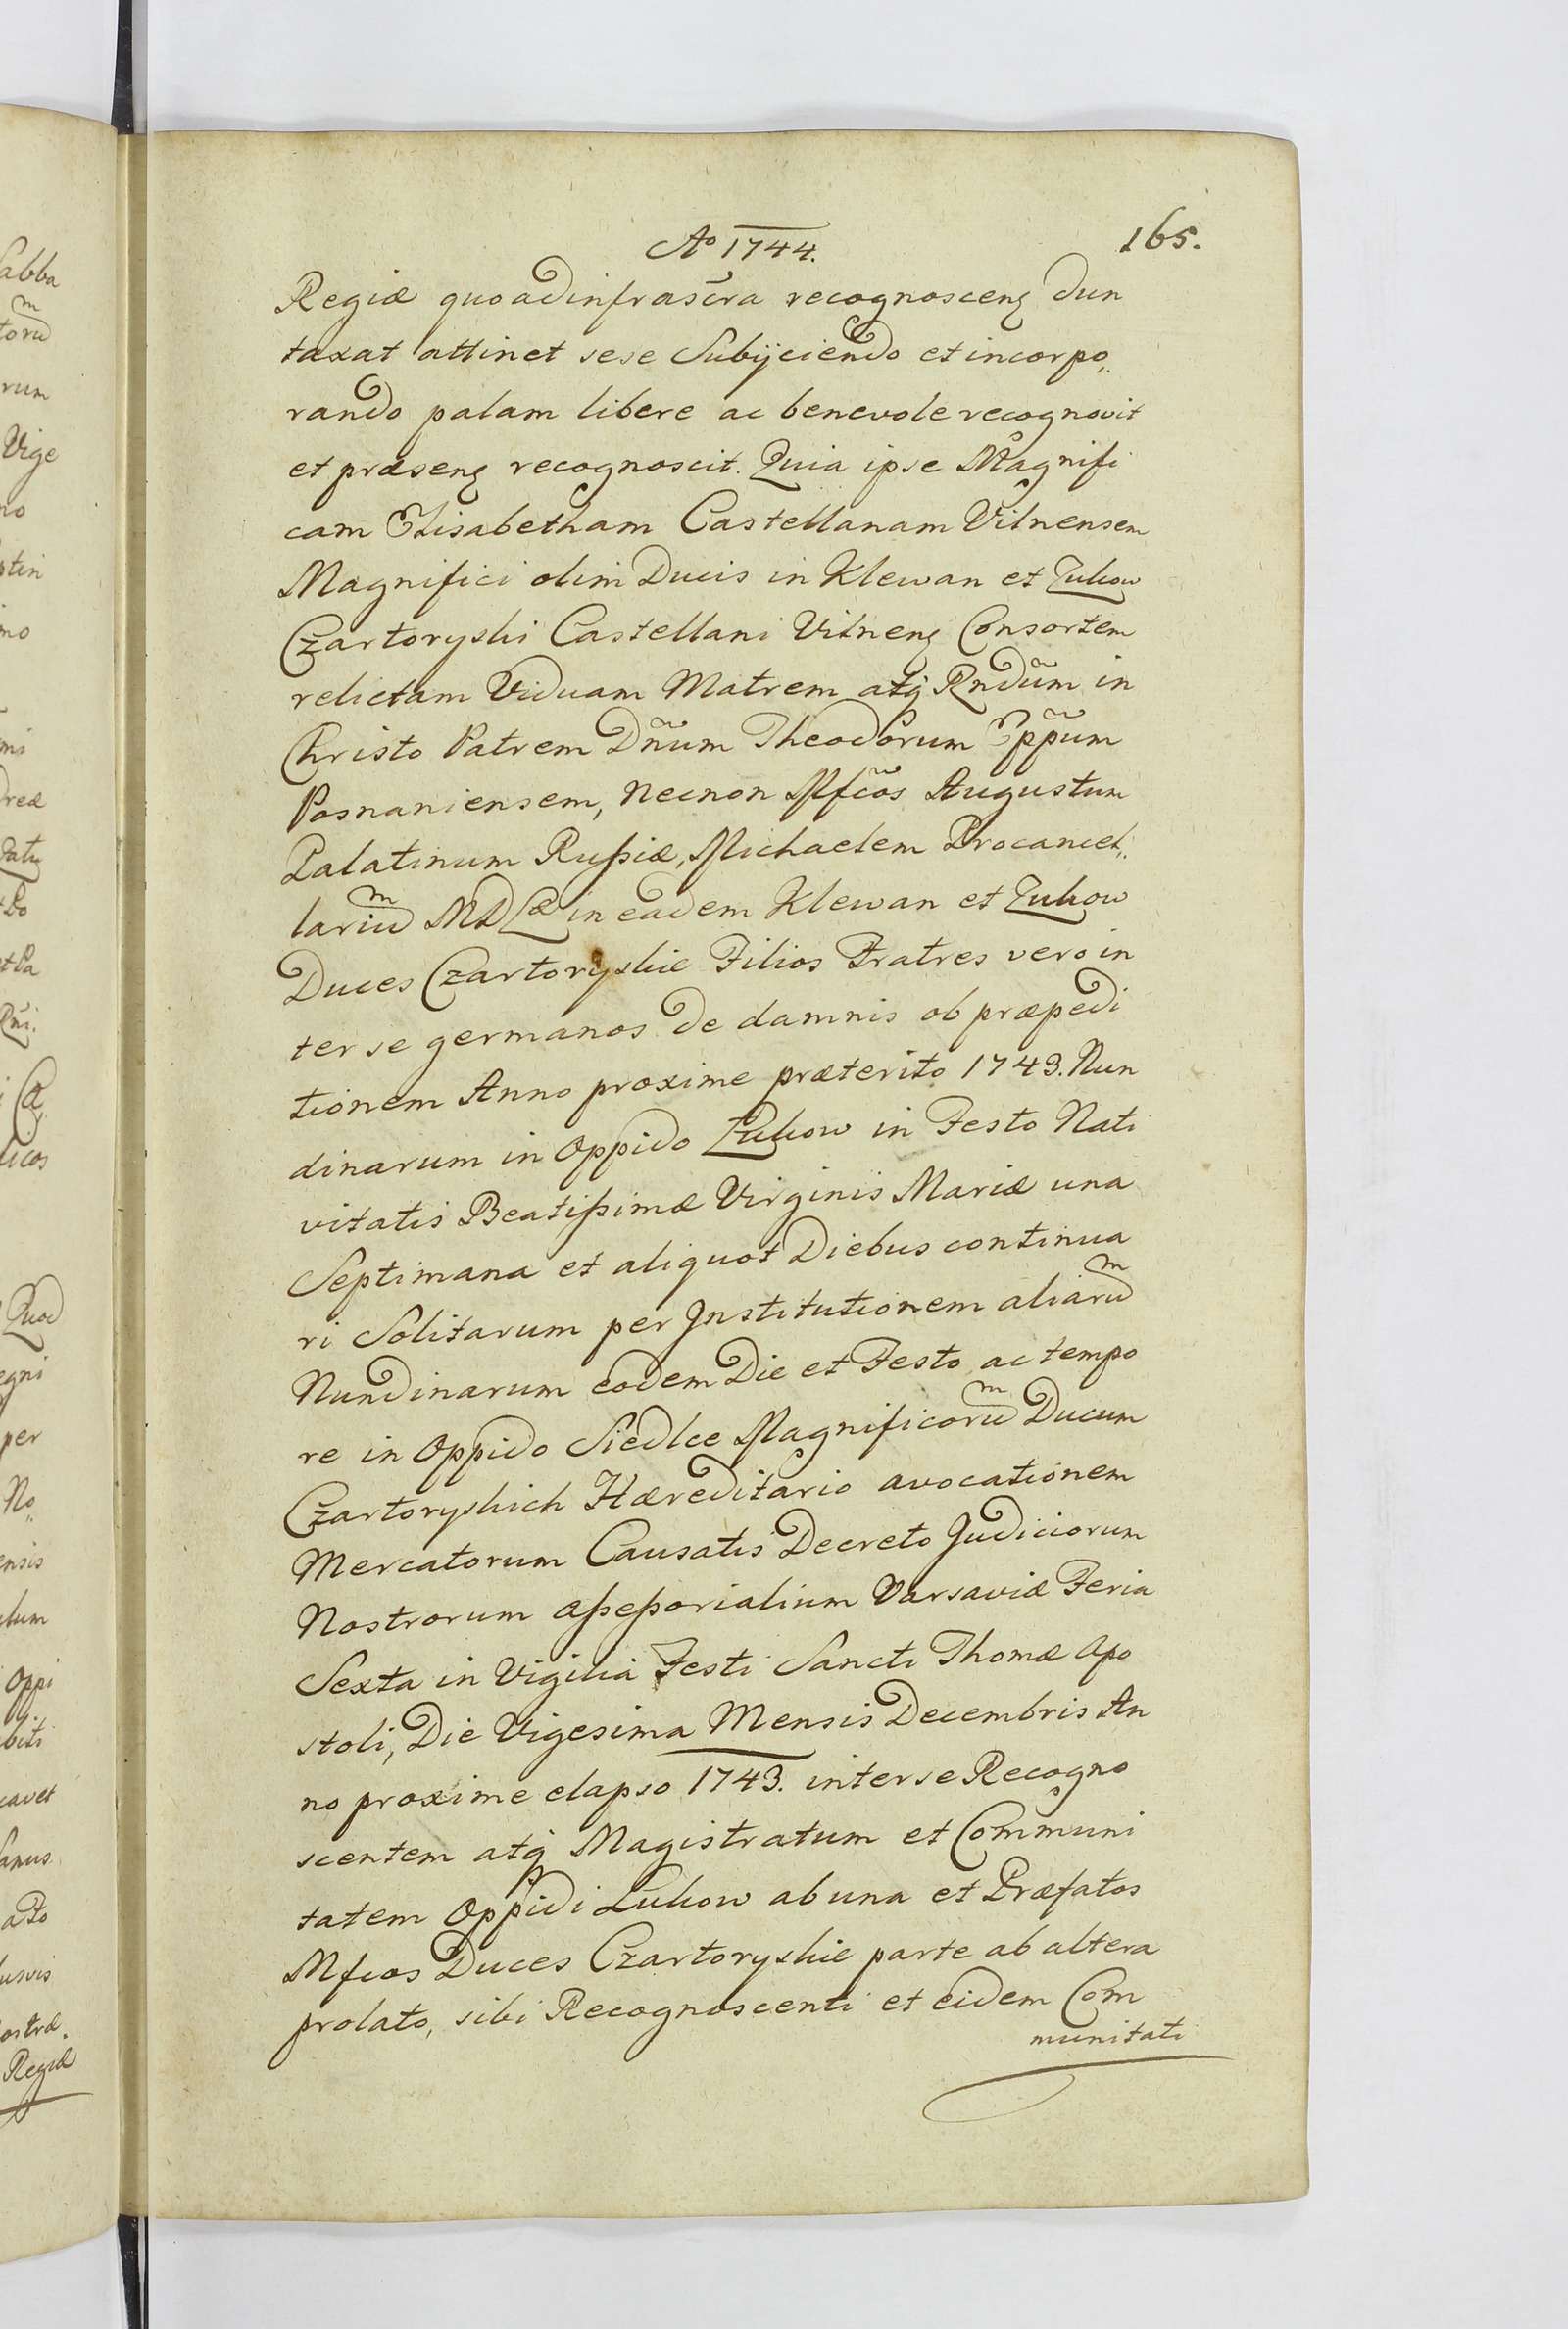 Aº 1744.
165.
Regiæ quoad infrascra recognoscenę dun
taxat attinet sese Subijciendo et incorpo„
rando palam libere ac benevole recognovit
et præsenę recognoscit. Quia ipse Magnifi
cam Elisabetham Castellanam Vilnensem
Magnifici olim Ducis in Klewan et Zukow
Czartoryski Castellani Vilnenę Consortem
relictam Viduam Matrem atq̃ Rndũm in
Christo Patrem Dñum Theodorum Eppũm
Posnaniensem, necnon Mfcõs Augustum
Palatinum Rußiæ, Michaelem Procancel„
larium MDLæ in eadem Klewan et Zukow
Duces Czartoryskie Filios Fratres vero in
ter se germanos de damnis ob præpedi
tionem Anno proxime præterito 1743. Nun
dinarum in Oppido Łukow in Festo Nati
vitatis Beatißimæ Virginis Mariæ una
Septimana et aliquot Diebus continua
ri Solitarum per Institutionem aliarum
Nundinarum eodem Die et Festo ac tempo
re in Oppido Siedlce Magnificorum Ducum
Czartoryskich Hæreditario avocationem
Mercatorum Causatis Decreto Judiciorum
Nostrorum aßeßorialium Varsaviæ Feria
Sexta in Vigilia Festi Sancti Thomæ Apo
stoli, Die Vigesima Mensis Decembris An
no proxime elapso 1743. inter se Recogno
scentem atq̃ Magistratum et Communi
tatem Oppidi Lukow ab una et Præfatos
Mfcos Duces Czartoryskie parte ab altera
prolato, sibi Recognoscenti et eidem Com
munitati
Sabba
torum
rum
Vige
no
mo
mi
Do
et Pa
Rñi.
Quod
egni
per
No„
ensis
lum
Oppi
biti
cavet
ato
Regiæ